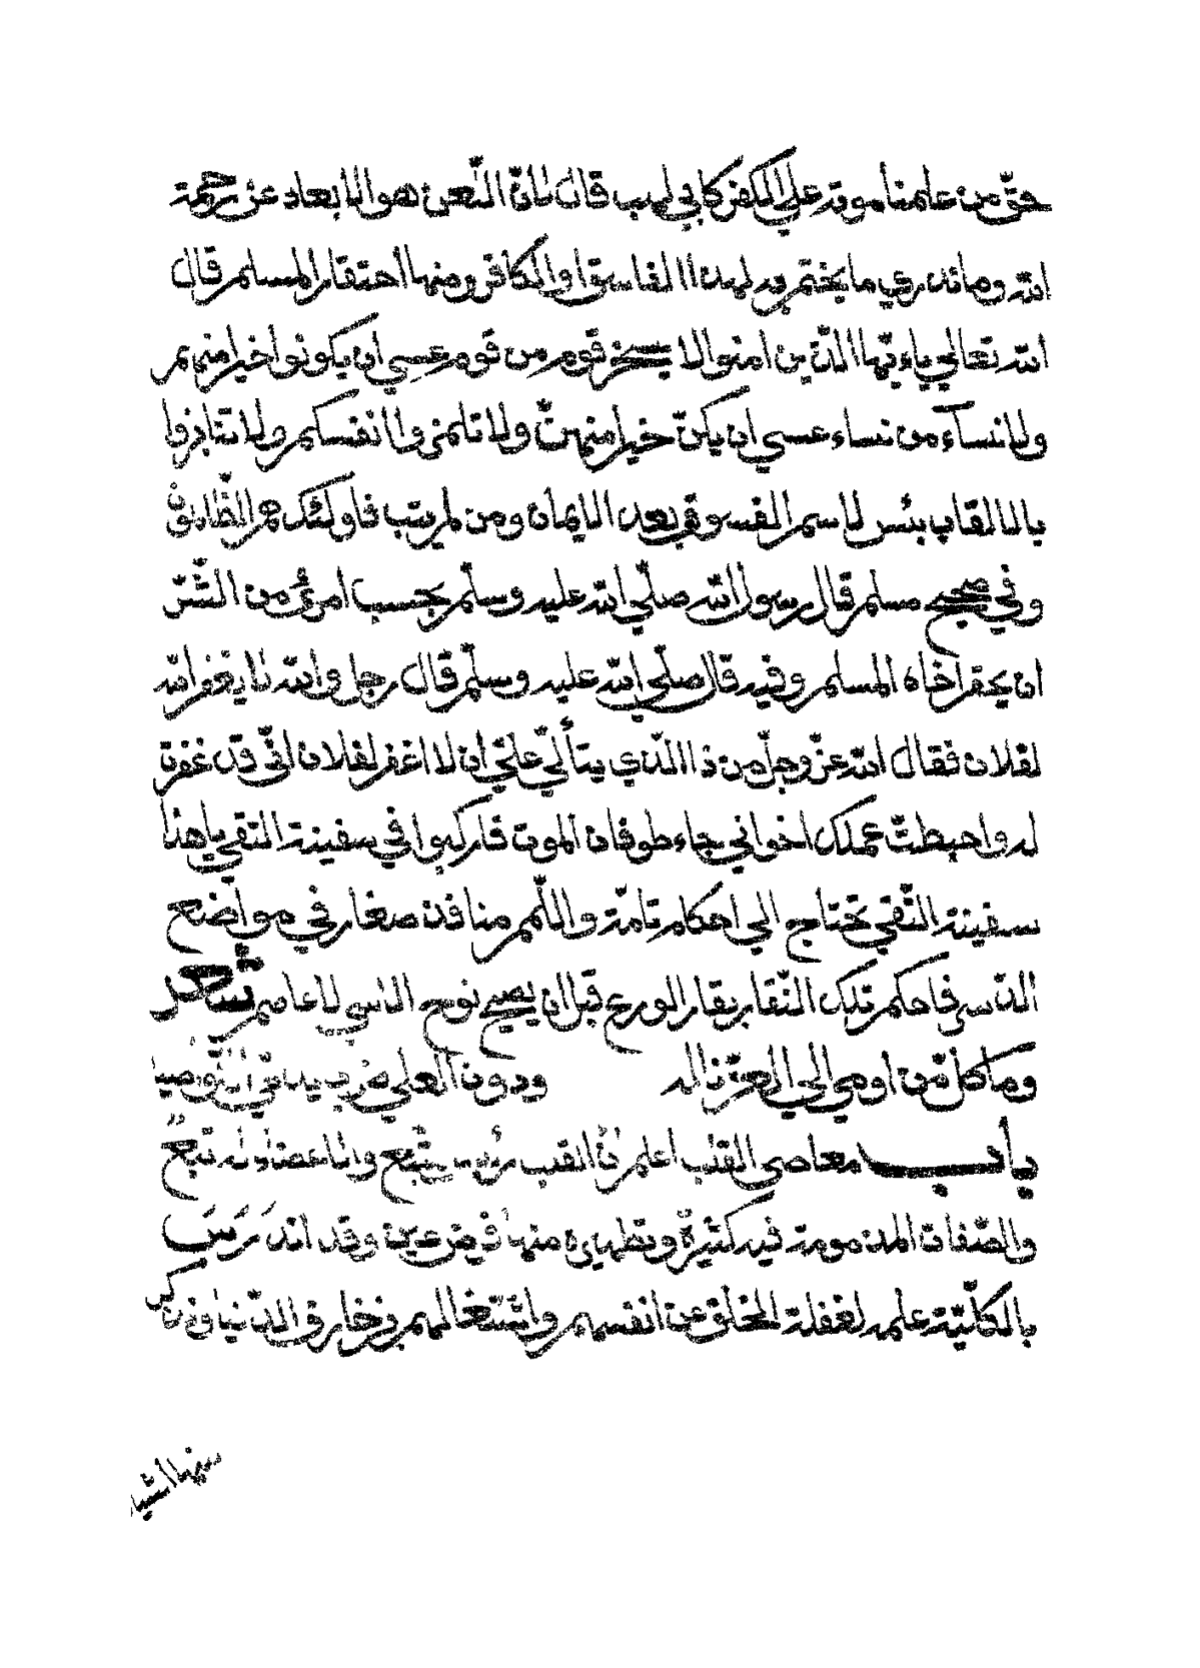 حقّ من علمنا موته علي الكفر كابي لهب قال لانّ اللّعن هو الابعاد عن رحمة
الله وما ندري ما يختم به لهذا الفاسق او الكافر ومنها احتقار المسلم قال
الله تعالي ياءيّها الذّين امنوا لا يسخر قوم من قوم عسي ان يكونوا خيرا منهم
ولا نسآء من نساء عسي ان يكنّ خيرا منهنّ ولا تلمزوا انفسكم ولا تنابزوا
بالالقاب بئس لاسم الفسوق بعد الايمان ومن لم يتب فاولئك هم الظّالمون
وفي صحيح مسلم قال رسول الله صلّي الله عليه وسلّم بحسب امرئ من الشّرّ
ان يحقر اخاه المسلم وفيه قال صلّي الله عليه وسلّم قال رجل والله لا يغفر الله
لفلان فقال الله عزّ وجلّ من ذا الّذي يتألّي عليّ ان لا اغفر لفلان انّي قد غفرت
له واحبطتّ عملك اخواني جاء طوفان الموت فاركبوا في سفينة التقي ياهذا
سفينة التّقي تحتاج الي احكام تامّة واللّم منافذ صغار في مواضع
الدّسر فاحكم تلك النّقار بقار الورع قبل ان يصيح نوح الاسي لا عاصم شعر
وما كلّ من اومي الي العزّ ناله ودون العلي ضرب
باب معاصي القلب اعلم انّ القلب رئيس يتّبع والاعضاء له تبع
والصّفات المذمومة فيه كثيرة وتطهيره منها فرض عين وقد اندرس
بالكلّيّة علمه لغفلة الخلق عن انفسهم واشتغالهم بزخارف الدّنيا وذكر
منها اشيا